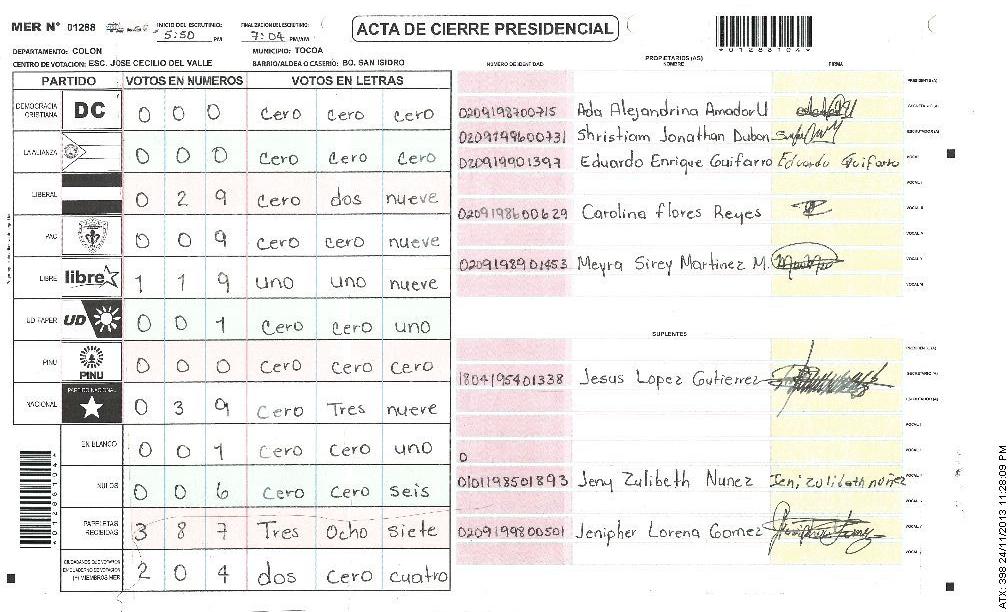 MER N° 01288
INICIO DEL ESCRUTINIO:
5:50 PM
FINALIZACION DEL ESCRUTINIO:
7:04 PM/AM
ACTA DE CIERRE PRESIDENCIAL
*01288104*
DEPARTAMENTO: COLON
MUNICIPIO: TOCOA
CENTRO DE VOTACION: ESC. JOSE CECILIO DEL VALLE
BARRIO/ALDEA O CASERIO: BO. SAN ISIDRO
PARTIDO VOTOS EN NUMEROS VOTOS EN LETRAS
DEMOCRACIA CRISTIANA DC 0 0 0 cero cero cero
LA ALIANZA 0 0 0 cero cero cero
LIBERAL 0 2 9 cero dos nueve
PAC 0 0 9 cero cero nueve
LIBRE libre 1 1 9 uno uno nueve
UD FAPER UD 0 0 1 cero cero uno
PINU PINU 0 0 0 cero cero cero
NACIONAL PARTIDO NACIONAL 0 3 9 cero Tres nueve
EN BLANCO 0 0 1 cero cero uno
NULOS 0 0 6 cero cero seis
PAPELETAS RECIBIDAS 3 8 7 Tres Ocho siete
CIUDADANOS QUE VOTARON EN CUADERNO DE VOTACION (+) MIEMBROS MER 2 0 4 dos cero cuatro
*01288104*
PROPIETARIOS (AS)
NUMERO DE IDENTIDAD NOMBRE FIRMA
PRESIDENTE (A)
0209198700715 Ada Alejandrina Amador U SECRETARIO (A)
0209199600731 Shristiam Jonathan Dubon ESCRUTADOR (A)
020919901397 Eduardo Enrique Guifarro Eduardo Guifarro VOCAL I
0209198600629 Carolina flores Reyes
0209198901453 Meyra Sirey Martinez M.
SUPLENTES
PRESIDENTE (A)
1804195401338 Jesus Lopez Gutierrez SECRETARIO (A)
ESCRUTADOR (A)
0
0101198501893 Jeny Zulibeth Nunez Jeni zulibeth nuñez
0209199800501 Jenipher Lorena Gomez
ATX: 398 24/11/2013 11:28:09 PM